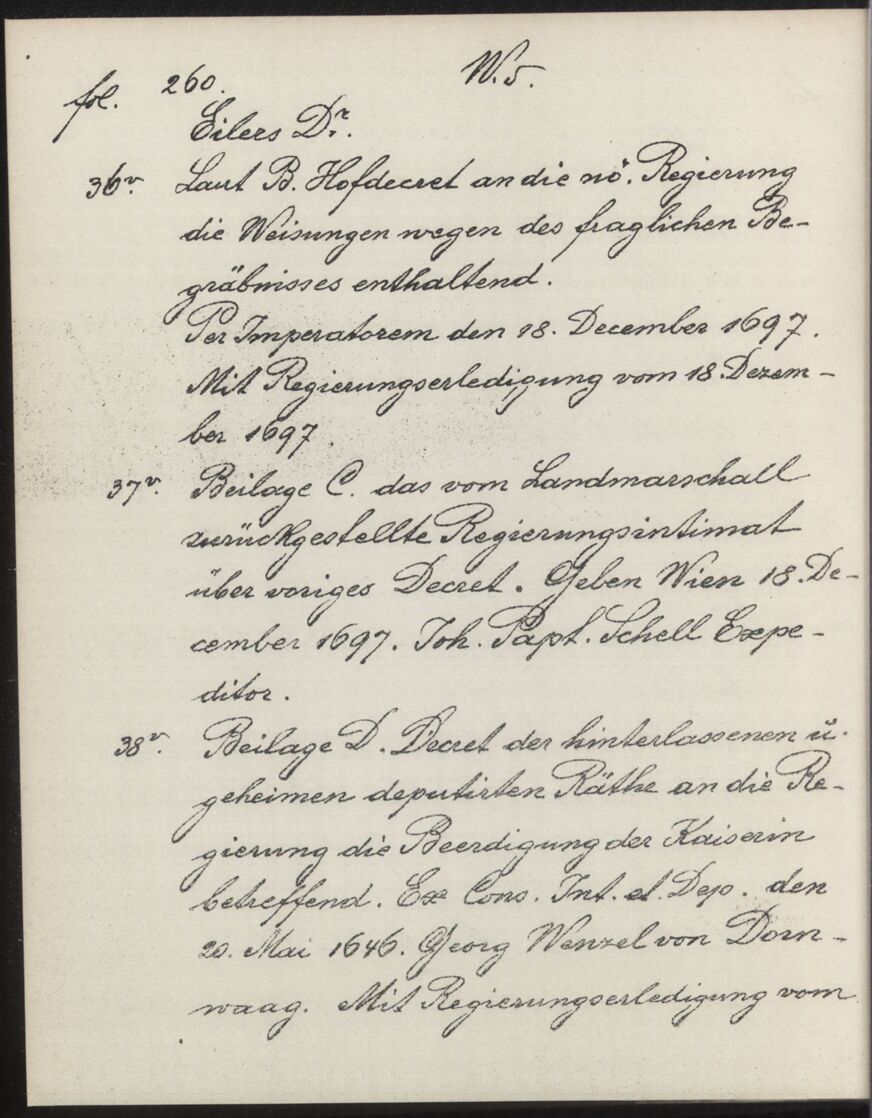 W. 5.
fol. 260.
Eilers Dr.
36v. Laut B. Hofdecret an die nö. Regierung
die Weisungen wegen des fraglichen Be-
gräbnisses enthaltend.
Per Imperatorem den 18. December 1697.
Mit Regierungserledigung vom 18. Dezem-
ber 1697.
37v. Beilage C. das vom Landmarschall
zurückgestellte Regierungsintimat
über voriges Decret. Geben Wien 18. De-
cember 1697. Joh. Papt. Schell Expe-
ditor.
38v. Beilage D. Decret der hinterlassenen u.
geheimen deputirten Räthe an die Re-
gierung die Beerdigung der Kaiserin
betreffend. Ex Cons. Int. et Dep. den
20. Mai 1646. Georg Wenzel von Dorn-
waag. Mit Regierungserledigung vom